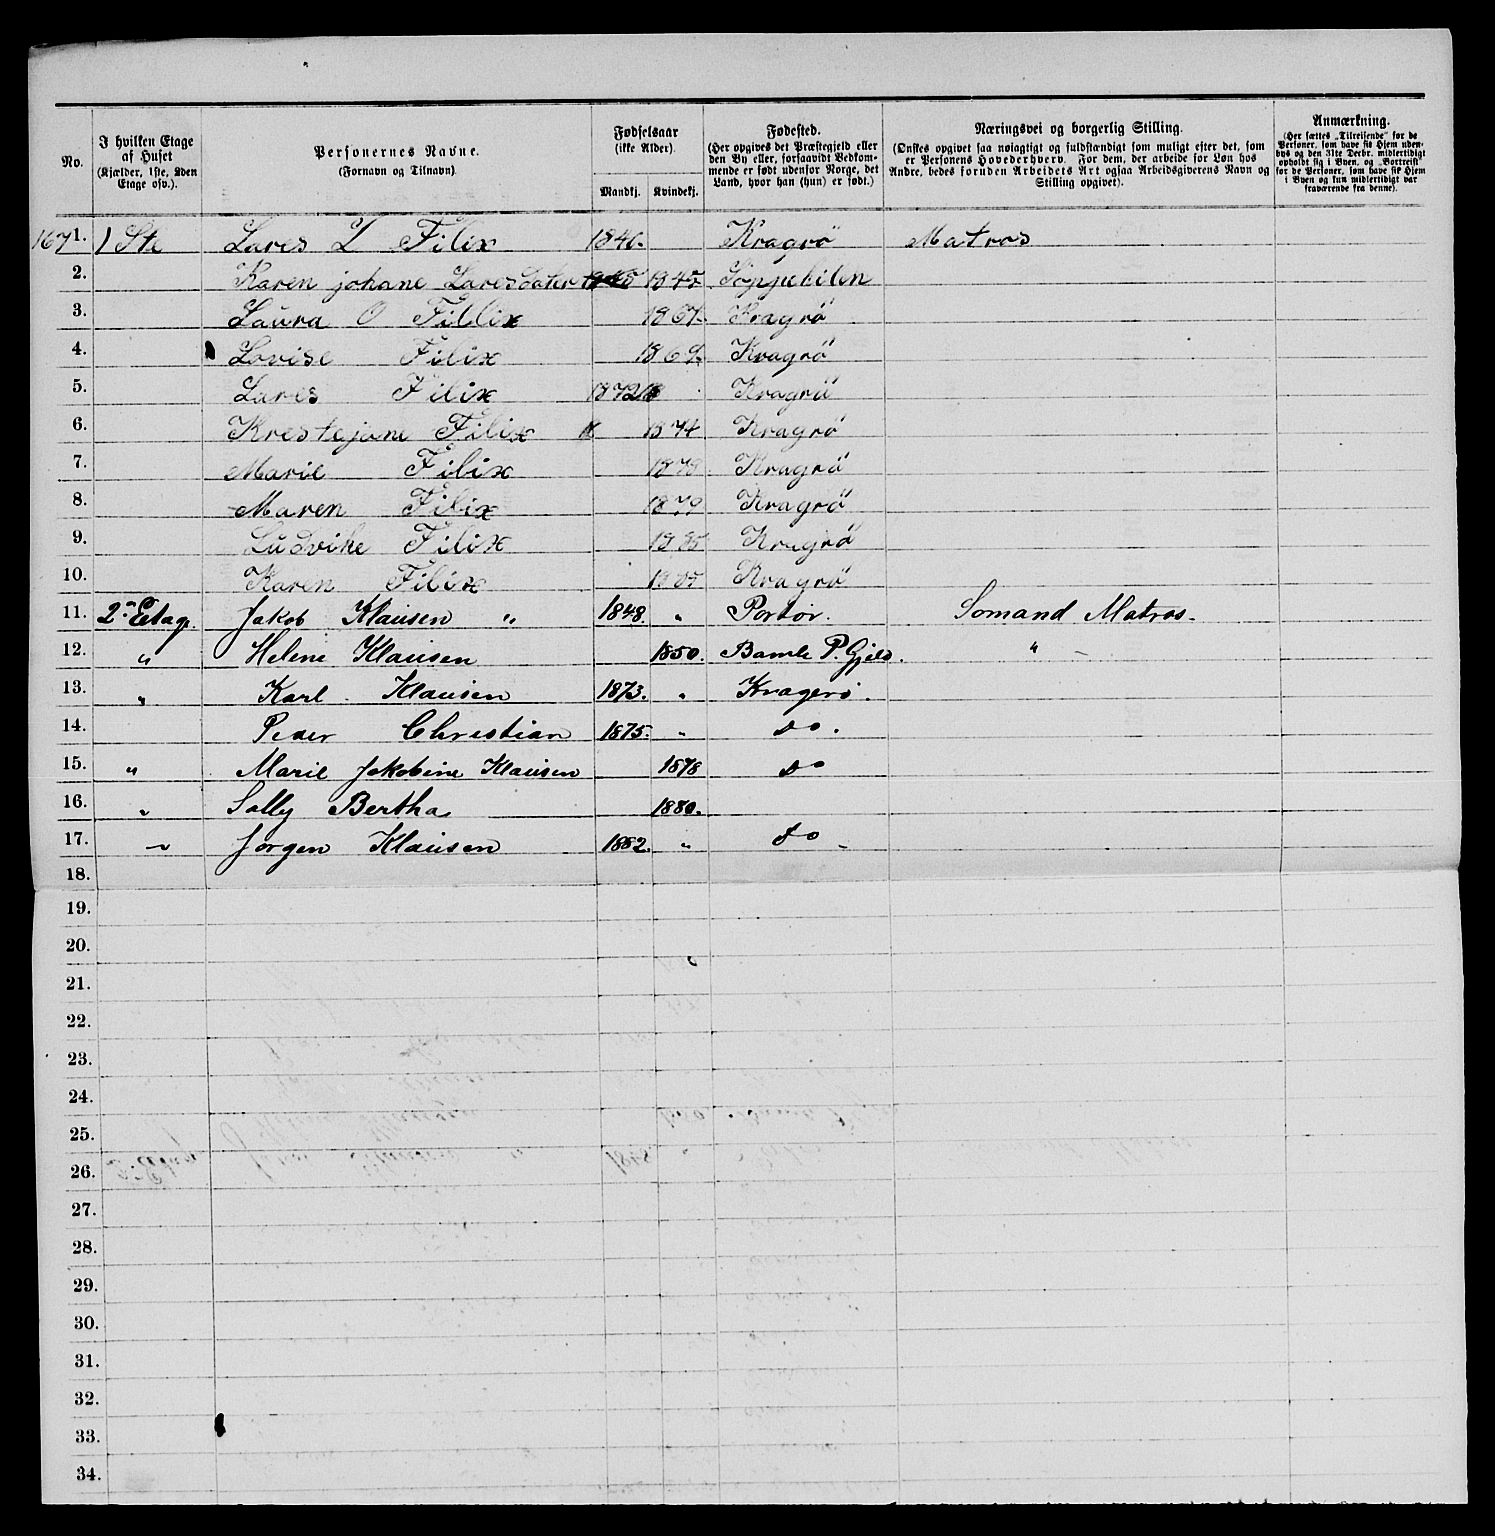 No.
I hvilken Etage af Huset (Kjælder, 1ste, 2den Etage osv.).
Personernes Navne. (Fornavn og Tilnavn)
Fødselsaar (ikke Alder). Mandkj. Kvindekj.
Fødested. (Her opgives det Præstegjeld eller den By eller, forsaavidt Vedkommende er født udenfor Norge, det Land, hvor han (hun) er født.)
Næringsvei og borgerlig Stilling. (Ønskes opgivet saa nøiagtigt og fuldstændigt som muligt efter det, som er Personens Hovederhverv. For dem, der arbeide for Løn hos Andre, bedes foruden Arbeidets Art ogsaa Arbeidsgiverens Navn og Stilling opgivet).
Anmærkning. (Her sættes „Tilreisende" for de Personer, som have sit Hjem udenbys og den 31te Decbr. midlertidigt opholdt sig i Byen, og „Bortreist" for de Personer, som have sit Hjem i Byen og kun midlertidigt var fraværende fra denne).
1. 1 Ste Lares L Filix Kragrö Matros
2. Karen johane Laresdater 1845
3. Laura O Fillix Kragrö
4. Lovise Filix 1869 Kragrö
5. Lares Filix 1872 Kragrö
6. Krestejane Filix 1874 Kragrö
7. Marie Filix Kragrö
8. Maren Filix 1879 Kragrö
9. Ludvike Filix 1885 Kragrö
10. Karen Filix Kragrö
11. 2n Etag. Jakob Klausen " 1848. " Portör. Somand Matros.
12. " Helene Klausen 1850. Bamle P. Gjeld. " -
13. " Karl Klausen 1873. " Kragerö.
14. Peder Christian 1875. " do.
15. " Marie Jakobine Klausen 1878 do
16. " Sally Bertha 1880.
17. " Jørgen Klausen 1882. " do -
18.
19.
20.
21.
22.
23.
24.
25.
26.
27.
28.
29.
30.
31.
32.
33.
34.